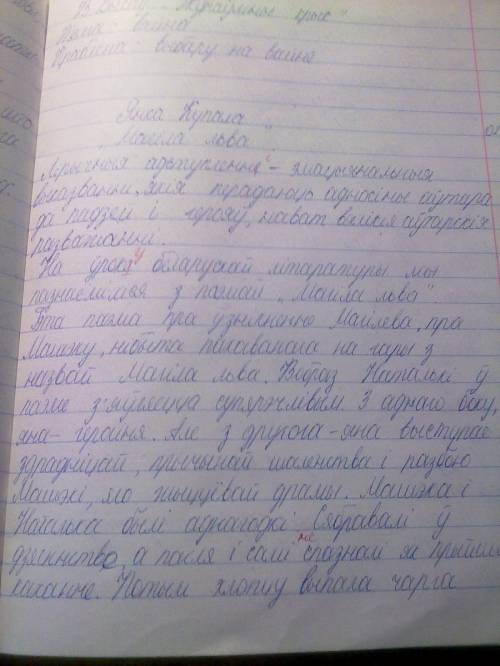 В. Быкаў "Жураўліны крык"
Тэма вайна
Праблема: выбару на вайне
Янка Купала
"Магіла льва"
Лірычныя адступленні - эмацыянальныя
выказванні, якія перадаюць адносіны аўтара
да падзей і герояў, нават вялікія аўтарскія
разважанні.
На ўроку беларускай літаратуры мы
пазнаёміліся з паэмай "Магіла льва".
Гэта паэма пра ўзнікненне Магілева, пра
Машэку, нібыта пахаванага на гары з
назвай Магіла льва. Вобраз Наталькі ў
паэме з'яўляецца супярэчлівым. З аднаго боку,
яна - гераіня. Але з другога - яна выступае
здрадніцай, прычынай шаленства і разбою
Машэкі, яго жыццёвай драмы. Машэка і
Наталька былі аднагодкі. Сябравалі ў
дзяцінстве, а пасля і самі не спазналі як прыйшло
каханне. Потым хлопцу выпала чарга